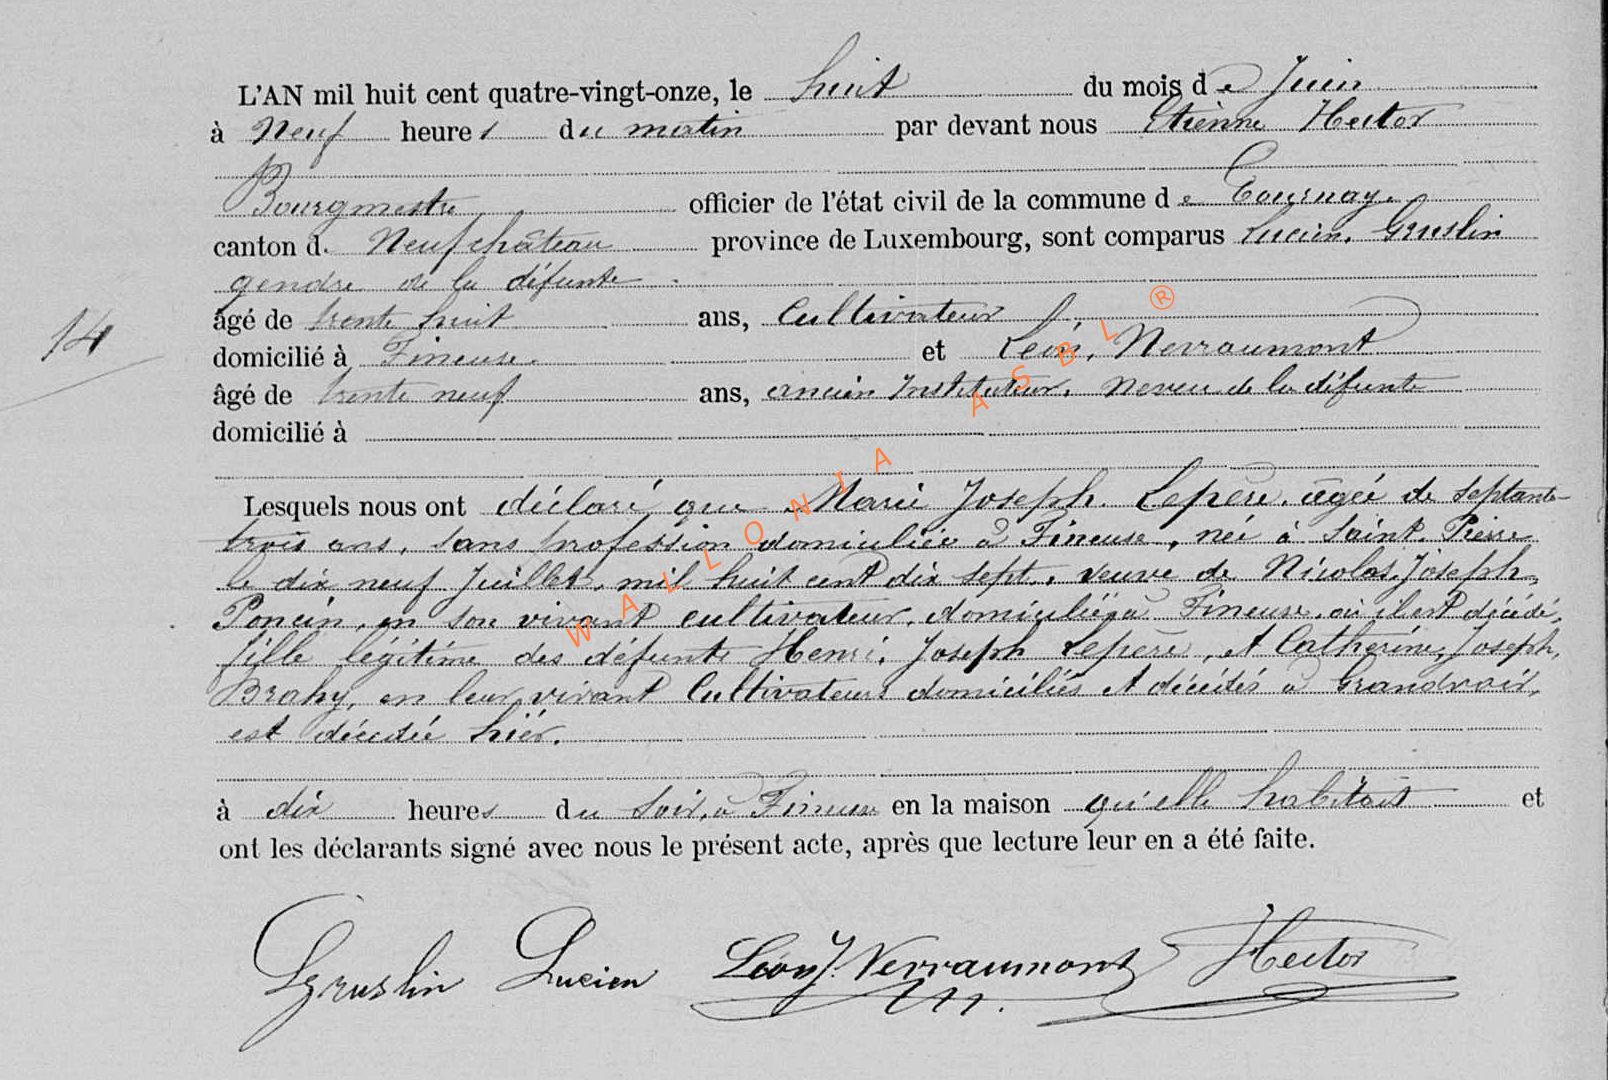 L'AN mil huit cent quatre-vingt-onze, le huit du mois de Juin
à Neuf heures du matin par devant nous Etienne Hector
Bourgmestre officier de l'état civil de la commune de Tournay.
canton d. Neufchâteau province de Luxembourg, sont comparus Lucien. Gruslin
gendre de la défunte
âgé de trente huit ans, Cultivateur
14
domicilié à Fineuse. et Léon, Verraumont
âgé de trente neuf ans, ancien Instituteur, neveu de la défunte
domicilié à
Lesquels nous ont déclaré que Marie Joseph. Lepère. âgée de septante-
trois ans, sans profession domiciliée à Fineuse, née à Saint. Pierre
le dix neuf Juillet, mil huit cent dix sept, veuve de Nicolas, Joseph,
Poncin, en son vivant cultivateur, domicilié à Fineuse, où il est décédé,
fille légitime des défunts Henri, Joseph Lepère, et Catherine, Joseph,
Brahy, en leur vivant Cultivateurs domiciliés et décédés à Grandvoir,
est décédée hier.
à dix heures du soir, à Fineuse en la maison qu'elle habitait et
ont les déclarants signé avec nous le présent acte, après que lecture leur en a été faite.
Gruslin Lucien Léon J. Verraumont Hector
WALLONIA ASBL ®